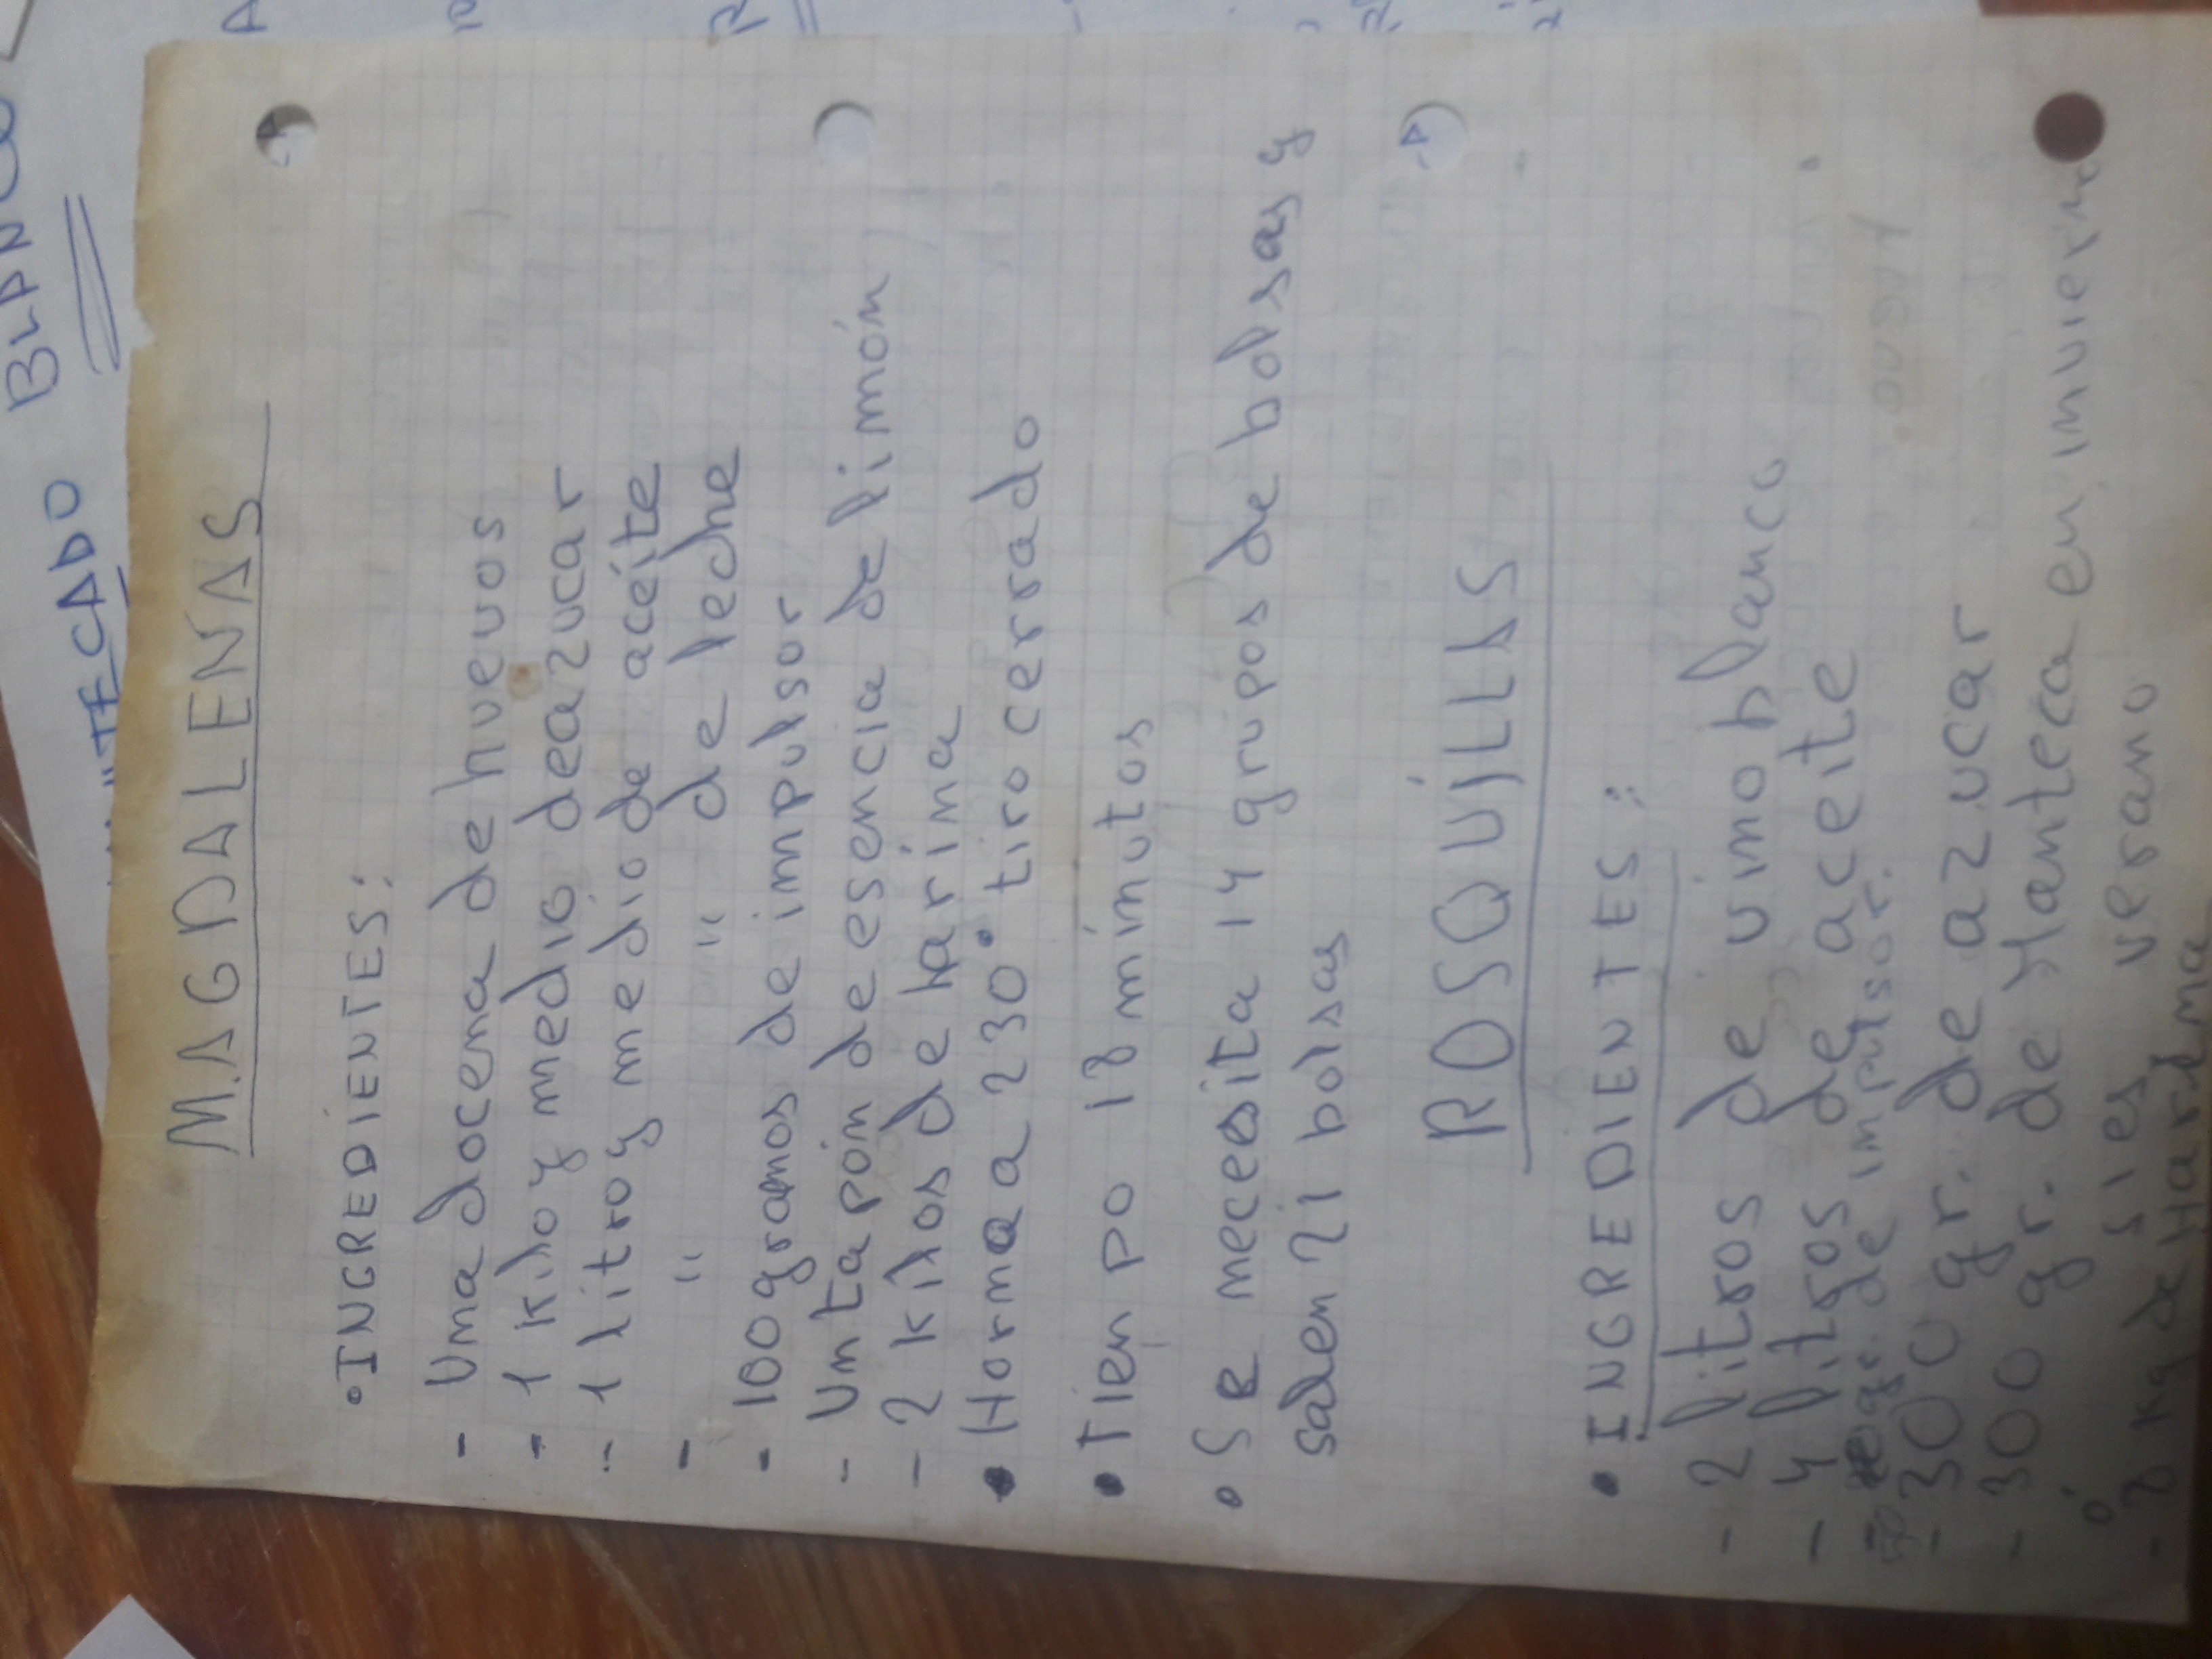 MAGDALENAS
•INGREDIENTES:
- Una docena de huevos
- 1 kilo y medio de azucar
- 1 litro y medio de acéite
- " " de leche
- 100 gramos de impulsor
- Un tapón de esencia de limón
- 2 kilos de harina
• Horno a 230° tiro cerrado
• Tiempo 18 minutos
• Se necesita 14 grupos de bolsas y
salen 21 bolsas
ROSQUILLAS
• INGREDIENTES:
- 2 litros de vino blanco
- 4 litros de aceite
de impulsor.
- 300 gr. de azucar
- 300 gr. de Manteca en invierno
ó si es verano
- 8 kg de Harina
BLANCO
TECADO